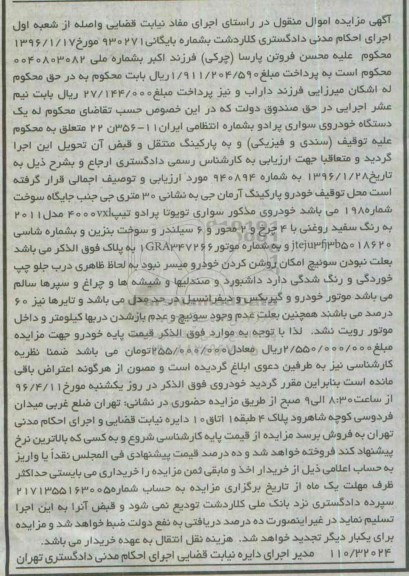 آگهی مزایده اموال منقول در راستای اجرای مفاد نیابت قضایی واصله از شعبه اول
اجرای احکام مدنی دادگستری کلاردشت بشماره بایگانی۹۳۰۲۷۱ مورخ۱۳۹۶/۱/۱۷
محکوم علیه محسن فروتن پارسا (چرکی) فرزند اکبر بشماره ملی ۰۰۴۰۸۰۳۰۸۲
محکوم است به پرداخت مبلغ۱/۹۱۱/۲۰۴/۵۹۰ریال بابت محکوم به در حق محکوم
له اشکان میرزایی فرزند داراب و نیز پرداخت مبلغ۲۷/۱۴۴/۰۰۰ ریال بابت نیم
عشر اجرایی در حق صندوق دولت که در این خصوص حسب تقاضای محکوم له یک
دستگاه خودروی سواری پرادو بشماره انتظامی ایران۱۱-۳۵۶ن ۲۲ متعلق به محکوم
علیه توقیف (سندی و فیزیکی) و به پارکینگ منتقل و قبض آن تحویل این اجرا
گردید و متعاقبا جهت ارزیابی به کارشناس رسمی دادگستری ارجاع و بشرح ذیل به
تاریخ۱۳۹۶/۱/۲۸ به شماره ۹۴۰۸۹۴ مورد ارزیابی و توصیف اجمالی قرار گرفته
است محل توقیف خودرو پارکینگ آرمان جی به نشانی ۳۰ متری جی جنب جایگاه سوخت
شماره۱۹۸ می باشد خودروی مذکور سواری تویوتا پرادو تیپ۴۰۰۰vxl مدل۲۰۱۱
به رنگ سفید روغنی با ۴ چرخ و ۲ محور و ۶ سیلندر و سوخت بنزین و بشماره شاسی
jteju۳fj۳b۵۰۱۸۶۲۰ و به شماره موتور۱GRA۳۴۷۲۶۶ به پلاک فوق الذکر می باشد
بعلت نبودن سوئیچ امکان روشن کردن خودرو میسر نبود به لحاظ ظاهری درب جلو چپ
خوردگی و رنگ شدگی دارد داشبورد و صندلیها و شیشه ها و چراغ و سپرها سالم
می باشد موتور خودرو و گیربکس و دیفرانسیل در حد مدل می باشد و تایرها نیز ۶۰
درصد می باشند همچنین بعلت عدم وجود سوئیچ و عدم بازشدن دربها کیلومتر و داخل
موتور رویت نشد. لذا با توجه به موارد فوق الذکر قیمت پایه خودرو جهت مزایده
مبلغ۲/۵۵۰/۰۰۰/۰۰۰ریال معادل۲۵۵/۰۰۰/۰۰۰تومان می باشد ضمنا نظریه
کارشناسی نیز به طرفین دعوی ابلاغ گردیده است و مصون از هرگونه اعتراض باقی
مانده است بنابراین مقرر گردید خودروی فوق الذکر در روز یکشنبه مورخ۹۶/۴/۱۱
از ساعت۸:۳۰ الی۹ صبح از طریق مزایده حضوری در نشانی: تهران ضلع غربی میدان
فردوسی کوچه شاهرود پلاک ۴ طبقه۱ اتاق۱۰ دایره نیابت قضایی و اجرای احکام مدنی
تهران به فروش برسد مزایده از قیمت پایه کارشناسی شروع و به کسی که بالاترین نرخ
پیشنهاد کند فروخته خواهد شد و ده درصد قیمت پیشنهادی فی المجلس نقداً یا واریز
به حساب اعلامی ذیل از خریدار اخذ و مابقی ثمن مزایده را خریداری می بایستی حداکثر
ظرف مهلت یک ماه از تاریخ برگزاری مزایده به حساب شماره۲۱۷۱۳۵۵۱۶۳۰۰۵
سپرده دادگستری نزد بانک ملی کلاردشت تودیع نمی شود و قبض آنرا به این اجرا
تسلیم نماید در غیر اینصورت ده درصد دریافتی به نفع دولت ضبط خواهد شد و مزایده
برای یکبار دیگر تجدید خواهد شد. هزینه نقل انتقال به عهده خریدار می باشد.
۱۱۰/۳۲۰۲۴ مدیر اجرای دایره نیابت قضایی اجرای احکام مدنی دادگستری تهران